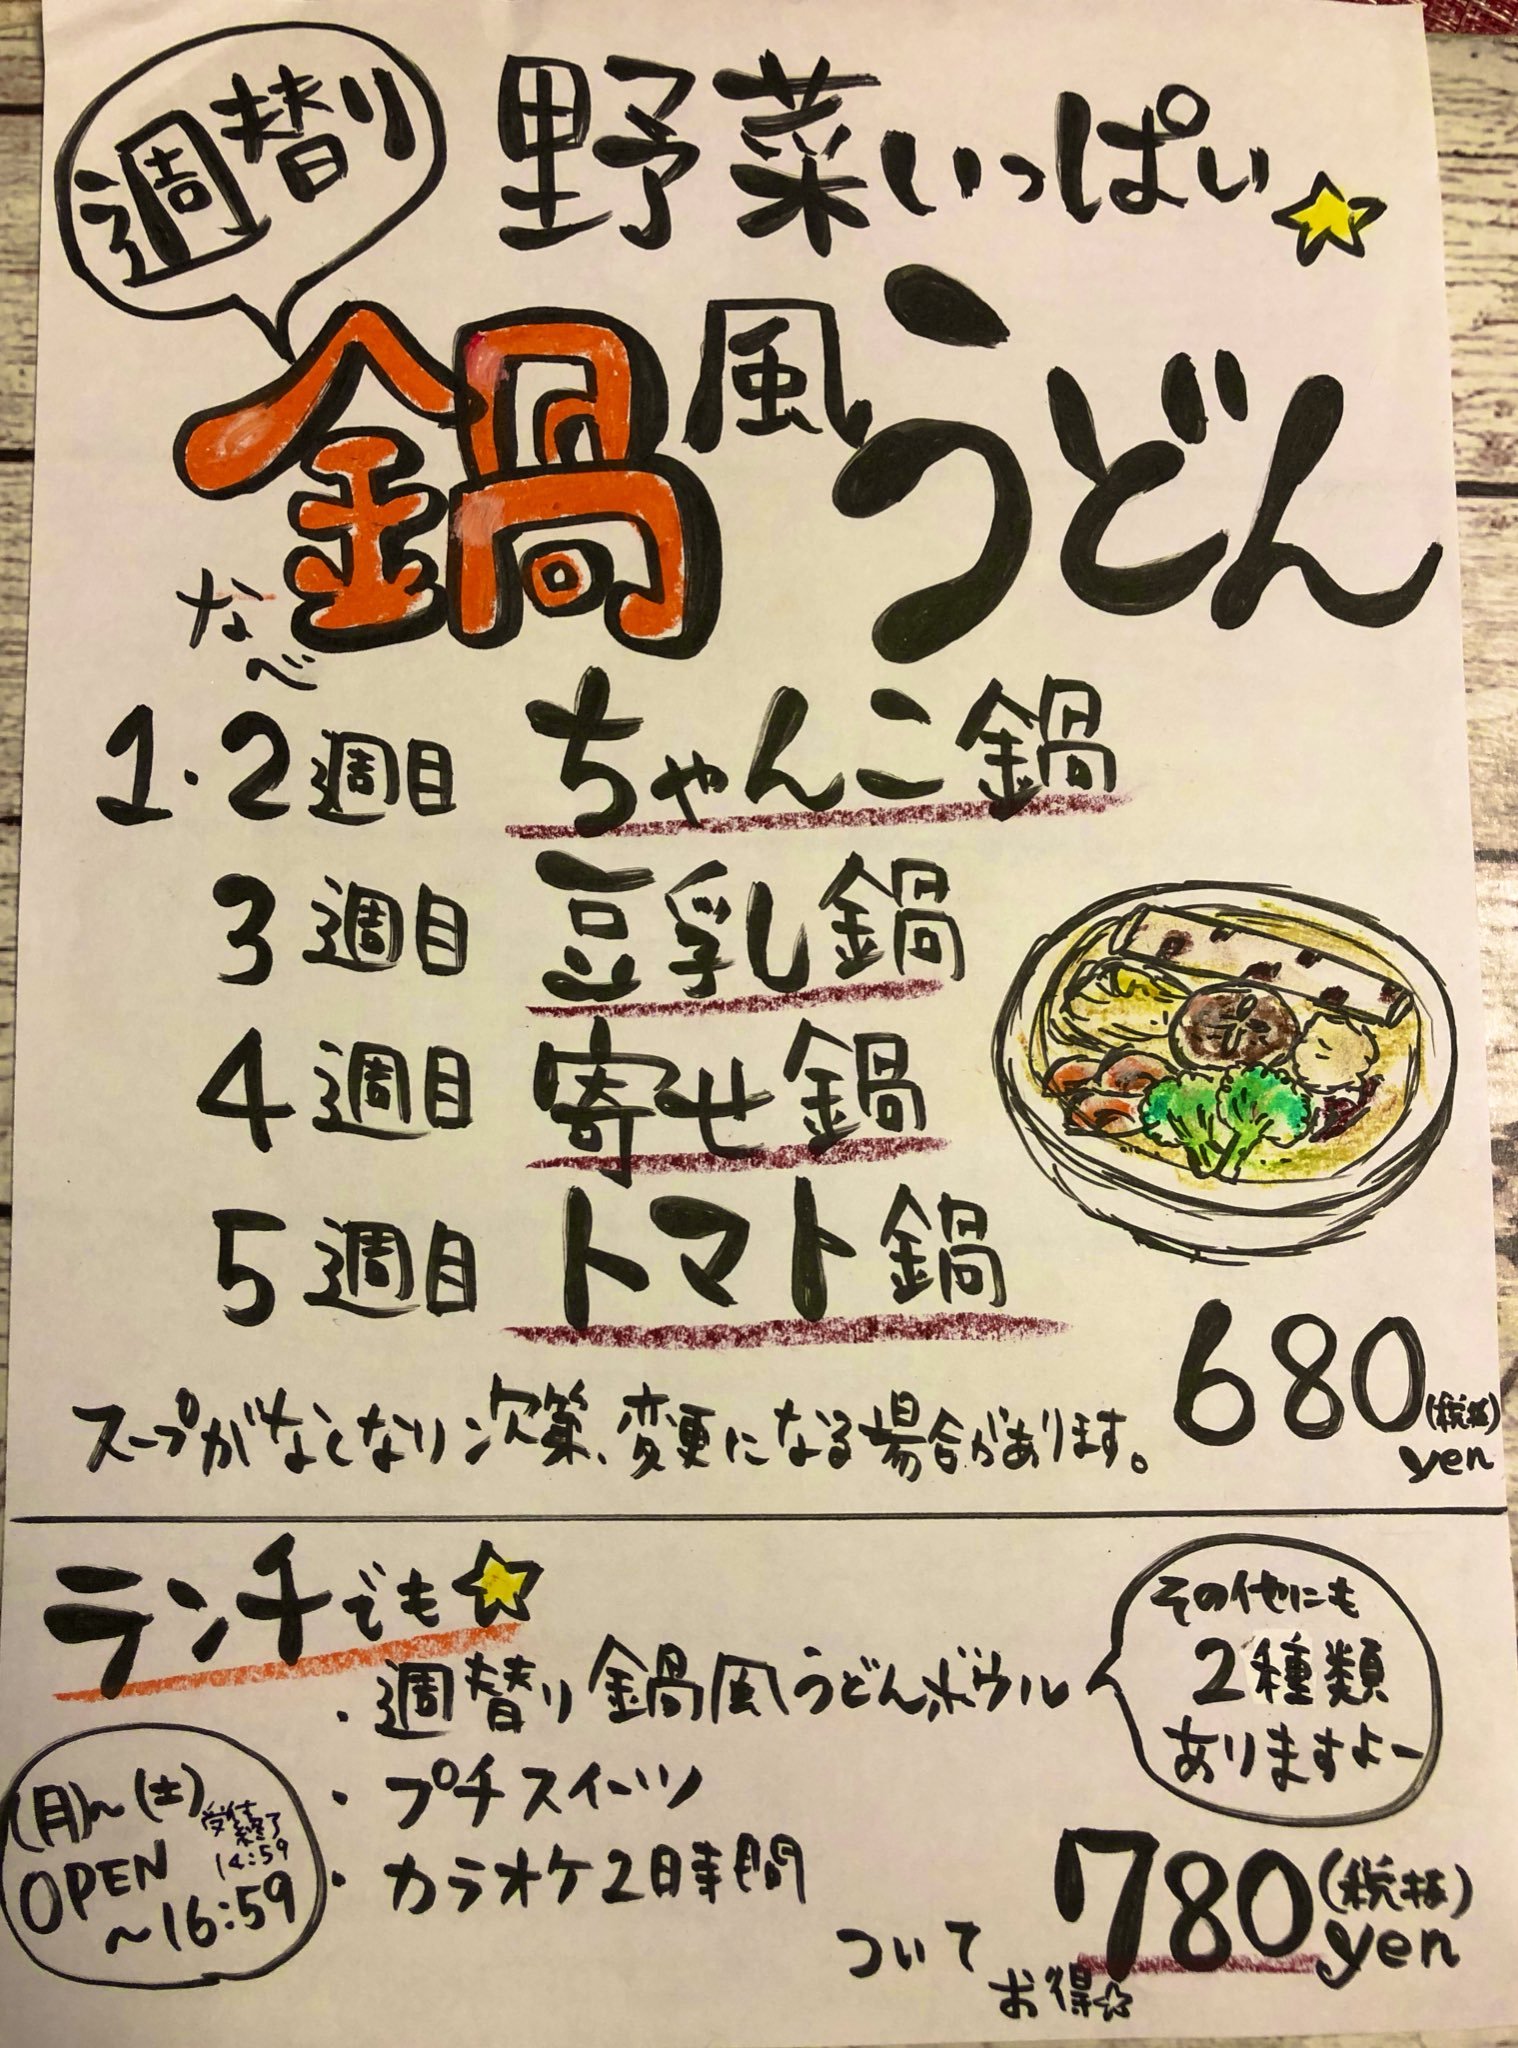 週替り
野菜いっぱい
鍋風うどん
なべ
1・2週目 ちゃんこ鍋
3週目 豆乳鍋
4週目 寄せ鍋
5週目 トマト鍋
680(税抜)yen
スープがなくなり次第、変更になる場合があります。
ランチでも
・週替り鍋風うどんボウル
その他にも
2種類
ありますよー
・プチスイーツ
・カラオケ2時間
(月)~(土)
受付終了
14:59
OPEN
~16:59
ついて
780(税抜)yen
お得☆